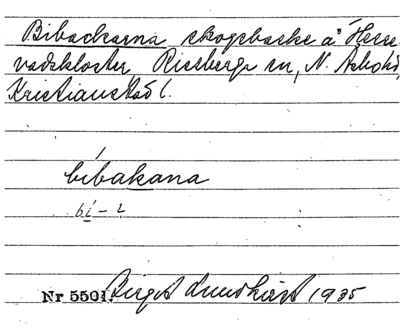 Bibackarna skogsbacke å Herre-
vadskloster, Riseberga sn, N. Åsbo hd,
Kristianstad l.
bibakana
bi – 2
Nr 5501. Birgit Lundkvist 1935